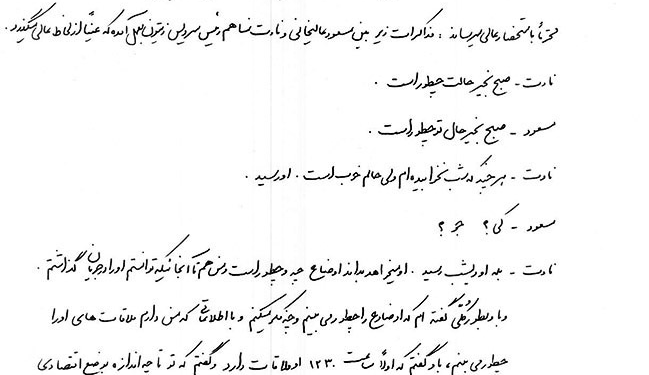 محترماً باستحضار عالی میرساند : مذاکرات زیر بین مسعود عالیخانی و نادت نساهم رئیس سرویس زیتون بعمل آمده که عیناً از لحاظ عالی میگذرد .
نادت - صبح بخیر حالت چطور است .
مسعود - صبح بخیر حال تو چطور است .
نادت - هر چند که شب نخوابیده ام ولی حالم خوب است . او رسید .
مسعود - کی ؟ ؟
نادت - بله او دیشب رسید . او میخواهد بداند اوضاع چه و چطور است و من هم تا آنجائیکه توانستم او را در جریان گذاشتم .
و باو بطور کلی گفته ام که اوضاع را چطور می بینم و چه فکر میکنم و با اطلاعاتی که من دارم ملاقات های او را
چطور می بینم ، باو گفتم که اولاً ساعت ۱۲۳۰ او ملاقات دارد و گفتم که تو تا چه اندازه بوضع اقتصادی